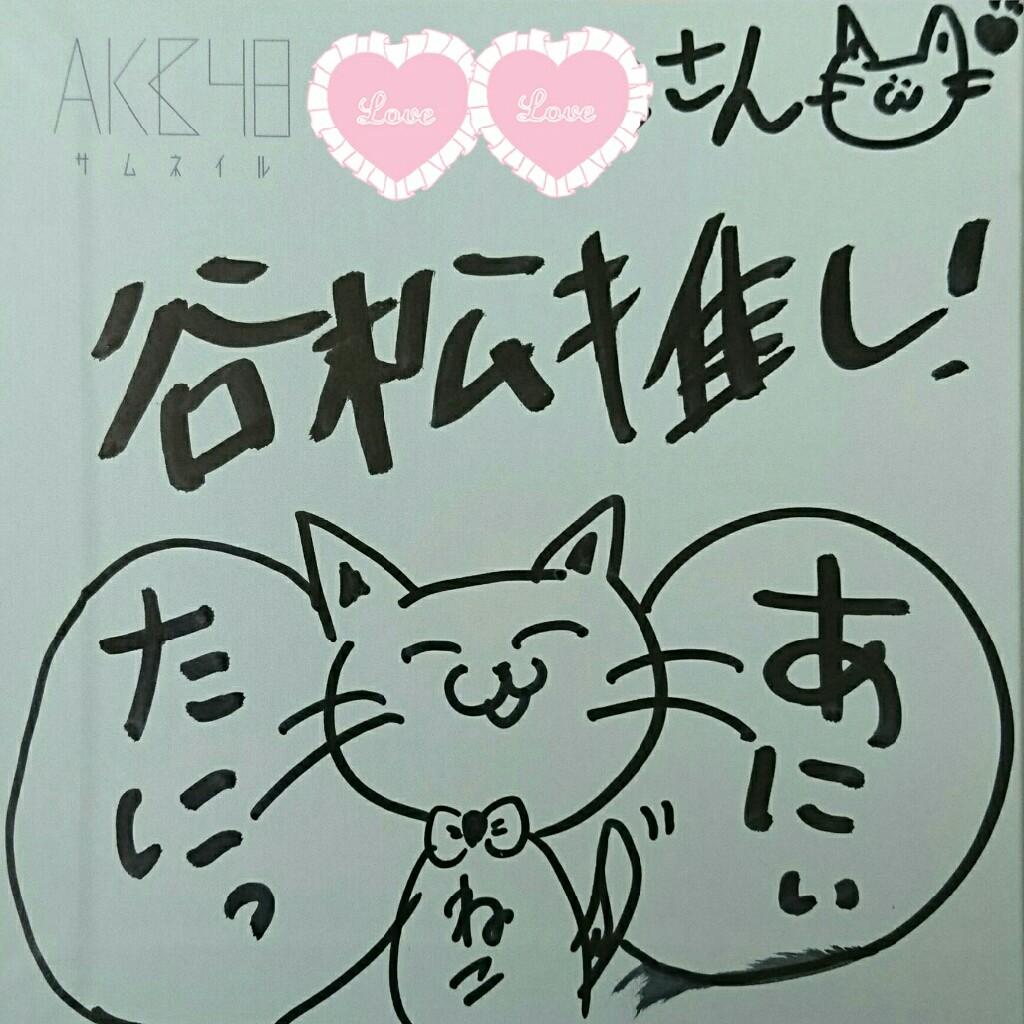 AKB48
サムネイル
Love Love さん
谷松推し!
あにぃ
たにっ
ねこ